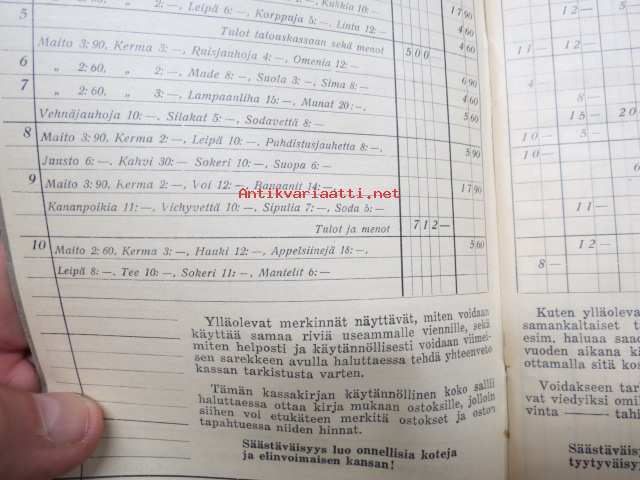 5 „ 2:—, Leipä 6:—, Korppuja 5:—, Lintu 12:— 17 90
Tulot talouskassaan sekä menot 500— 4 60
Maito 3:90, Kerma 3:—, Ruisjauhoja 4:—, Omenia 12:—
6 „ 2:60, „ 2:—, Made 8:—, Suola 3:—, Sima 8:— 6 90
7 „ 2:60, „ 3:—, Lampaanliha 15:—, Munat 20:—, 4 60
Vehnäjauhoja 10:—, Silakat 5:—, Sodavettä 8:— 5 60
8 Maito 3:90, Kerma 2:—, Leipä 10:—, Puhdistusjauhetta 8:—,
Juusto 6:—, Kahvi 30:— Sokeri 10:—, Suopa 6:— 5 90
9 Maito 3:90, Kerma 2:—, Voi 12:—, Banaanit 14:— 17 90
Antikvariaatti.net
Kananpoikia 11:—, Vichyvettä 10:—, Sipulia 7:—, Soda 5:—
Tulot ja menot 712—
10 Maito 2:60, Kerma 3:—, Hauki 12:—, Appelsiinejä 18:—, 5 60
Leipä 8:—, Tee 10:—, Sokeri 11:—, Mantelit 6:—
Ylläolevat merkinnät näyttävät, miten voidaan
käyttää samaa riviä useammalle viennille, sekä
miten helposti ja käytännöllisesti voidaan viimei-
sen sarekkeen avulla haluttaessa tehdä yhteenveto
kassan tarkistusta varten.
Tämän kassakirjan käytännöllinen koko sallii
haluttaessa ottaa kirja mukaan ostoksille, jolloin
siihen voi etukäteen merkitä ostokset ja oston
tapahtuessa niiden hinnat.
Säästäväisyys luo onnellisia koteja
ja elinvoimaisen kansan!
12 — 5 —
11 — 12 —
4
8 —
15 — 20
10 — 5 —
10 —
6
11 —
12 —
8 —
Kuten ylläolevat
samankaltaiset
esim. haluaa
vuoden aikana
ottamalla sitä
Voidakseen
vat viedyiksi
vinta
Säästäväis
tyytyväisy